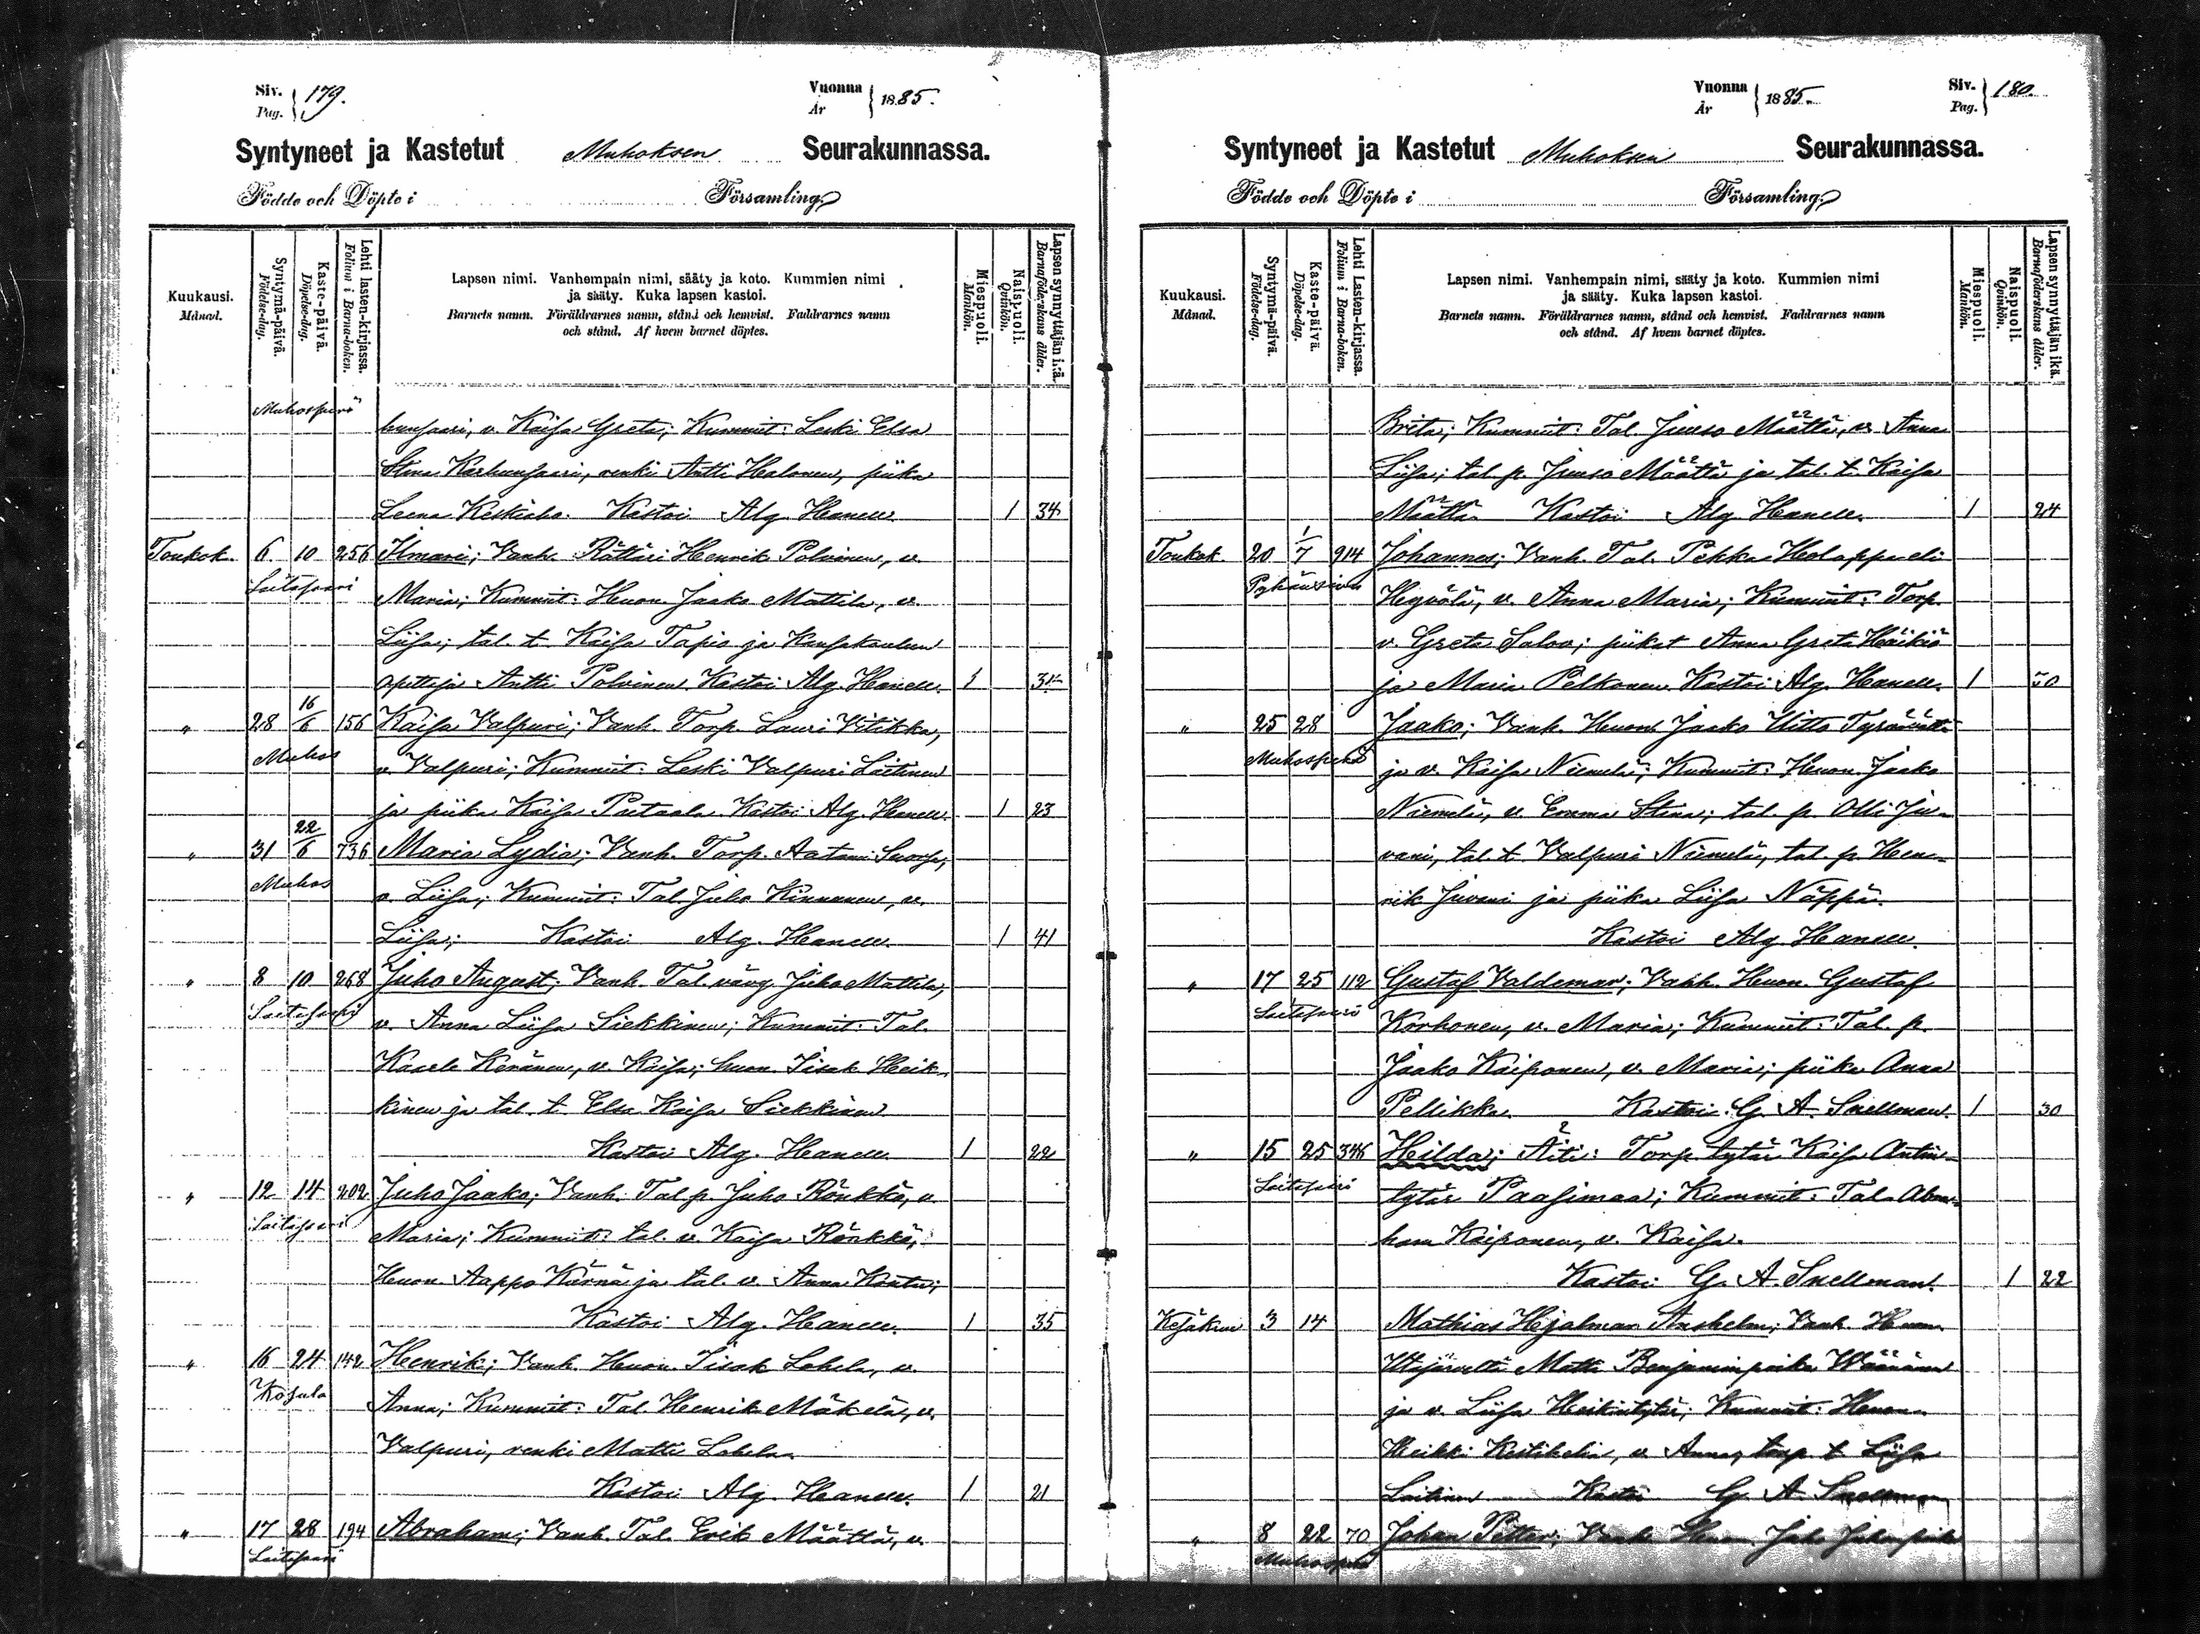 Siv. Pag. 179.
Vuonna År 1885.
Syntyneet ja Kastetut Muhoksen Seurakunnassa.
Födde och Döpte i Församling
Kuukausi. Månad.
Syntymä-päivä. Födelse-dag.
Kaste-päivä. Döpelse-dag.
Lehti lasten-kirjassa. Folium i Barna-boken.
Lapsen nimi. Vanhempain nimi, sääty ja koto. Kummien nimi
ja sääty. Kuka lapsen kastoi.
Barnets namn. Föräldrarnes namn, stånd och hemvist. Faddrarnes namn
och stånd. Af hvem barnet döptes.
Miespuoli. Mankön.
Naispuoli. Qvinkön.
Lapsen synnyttäjän ikä. Barnaföderskans ålder.
Muhosperä
v. Kaisa Greta; Kummit: Leski Elsa
Stina Karhunsaari, renki Antti Halonen, piika
Leena Keskiaho. Kastoi Alg. Hanell. 1 34
Toukok. 6 10 256 Ilmari; Vanh. Rättäri Henrik Polvinen, v.
Laitasaari
Maria; Kummit: Huon. Jaako Mattila, v.
Liisa; tal. t. Kaisa Tapio ja Kansakoulun
opettaja Antti Polvinen. Kastoi Alg. Hanell. 1
" 28 16/6 156 Kaisa Valpuri; Vanh. Torp. Lauri Vitikka,
Muhos
v. Valpuri; Kummit: Leski Valpuri Laitinen
ja piika Kaisa Pastaala. Kastoi Alg. Hanell. 1 23
" 31 22/6 736 Maria Lydia; Vanh. Torp. Aatami Suorsa,
Muhos
v. Liisa; Kummit: Tal. Juho Kinnunen, v.
Liisa; Kastoi Alg. Hanell. 1 41
" 8 10 268 Juho August; Vanh. Tal. väng Juho Mattila,
Laitasaari
v. Anna Liisa Siekkinen; Kummit: Tal.
Kaarle Keränen, v. Kaisa; huon. Iisak Heik-
kinen ja tal. t. Elsa Kaisa Siekkinen
Kastoi Alg. Hanell. 1 22
" 12 14 202 Juho Jaako; Vanh. Tal. p. Juho Rönkkö, v.
Laitasaari
Maria; Kummit: tal. v. Kaisa Rönkkö,
Huon. Aappo Kärnä ja tal. v. Anna
Kastoi Alg. Hanell. 1 35
" 16 24 142 Henrik; Vanh. Huon. Iisak Lahela, v.
Kosula
Anna; Kummit: Tal. Henrik Mäkelä, v.
Valpuri, renki Matti Lahela.
Kastoi Alg. Hanell. 1 21
" 17 28 194 Abraham; Vanh. Tal. Erik Määttä, v.
Laitasaari
Vuonna År 1885.
Siv. Pag. 180.
Syntyneet ja Kastetut Muhoksen Seurakunnassa.
Födde och Döpte i Församling
Kuukausi. Månad.
Syntymä-päivä. Födelse-dag.
Kaste-päivä. Döpelse-dag.
Lehti Lasten-kirjassa. Folium i Barna-boken.
Lapsen nimi. Vanhempain nimi, sääty ja koto. Kummien nimi
ja sääty. Kuka lapsen kastoi.
Barnets namn. Föräldrarnes namn, stånd och hemvist. Faddrarnes namn
och stånd. Af hvem barnet döptes.
Miespuoli. Mankön.
Naispuoli. Qvinkön.
Lapsen synnyttäjän ikä. Barnaföderskans ålder.
Brita; Kummit: Tal. Juuso Määttä, v. Anna
Liisa; tal. p. Juuso Määttä ja tal. t. Kaisa
Määttä Kastoi Alg. Hanell. 1 24
Toukok. 20 1/7 914 Johannes; Vanh. Tal. Pekka Holappa eli
Pyhänsivu
Hyvölä, v. Anna Maria; Kummit: Torp.
v. Greta Saloa; piikat Anna Greta Häikiö
ja Maria Pelkonen. Kastoi Alg. Hanell. 1
" 25 28 Jaako; Vanh. Huon. Jaako Uitto
Muhosperä
ja v. Kaisa Niemelä; Kummit: Huon. Jaako
Niemelä, v. Emma Stina; tal. p. Olli Ju-
vani, tal. t. Valpuri Niemelä, tal. p. Hen-
rik Juvani ja piika Liisa Näppä.
Kastoi Alg. Hanell.
" 17 25 112 Gustaf Valdemar; Vanh. Huon. Gustaf
Laitasaari
Korhonen, v. Maria; Kummit: Tal. p.
Jaako Kaiponen, v. Maria; piika Anna
Pellikka. Kastoi G. A. Snellman. 1 30
" 15 25 346 Hilda; Äiti: Torp. tytär Kaisa Antin-
Laitasaari
tytär Paasimaa; Kummit: Tal. Abra-
ham Kaiponen, v. Kaisa.
Kastoi G. A. Snellman. 1 22
Kesäkuu 3 14 Mathias Hjalmar Anshelm; Vanh. Huon.
Matti Benjaminpoika Väänänen
ja v. Liisa Heikintytär; Kummit: Huon.
Heikki v. Anna, torp. t. Liisa
Laitinen Kastoi G. A. Snellman
" 8 22 70 Johan Petter; Vanh. Huon. Juho
Muhosperä